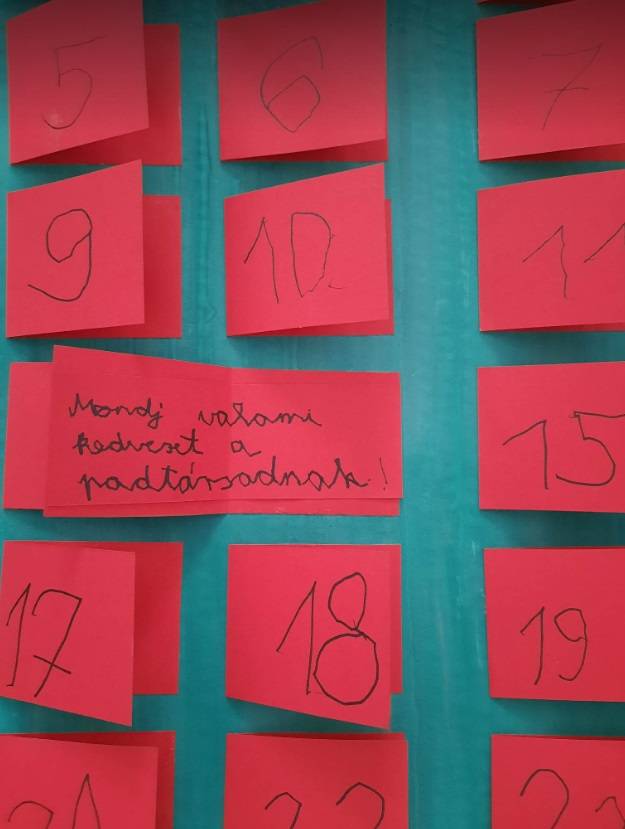 5 6 7
9 10. 11
Mondj valami
kedveset a
padtársadnak!
15
17 18 19
21 22 23